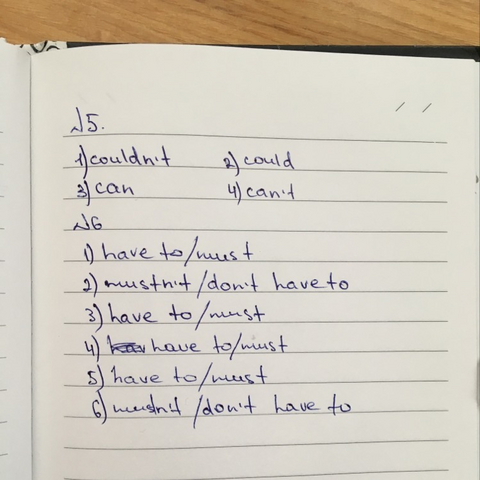 №5.
1) couldn't 2) could
3) can 4) can't
№6
1) have to/must
2) mustn't /don't have to
3) have to /must
4) have to/must
5) have to/must
6) mustn't /don't have to